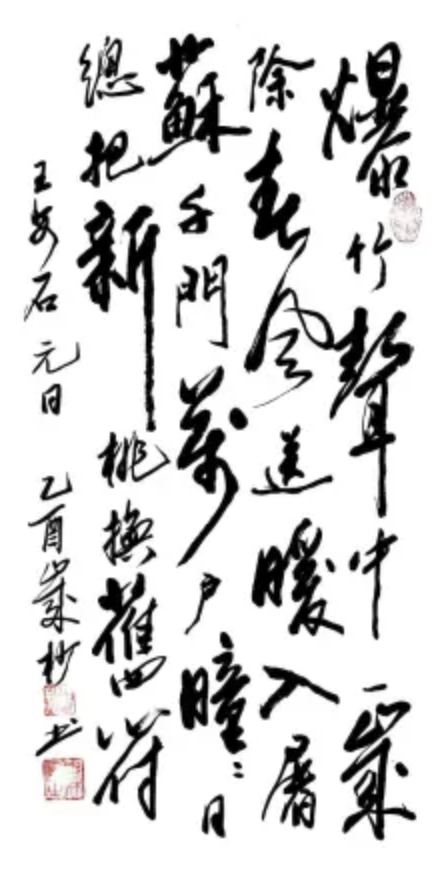 爆竹聲中一歲
除春風送暖入屠
蘇千門萬户曈〻日
總把新桃換舊符
王安石元日 乙酉歲杪書